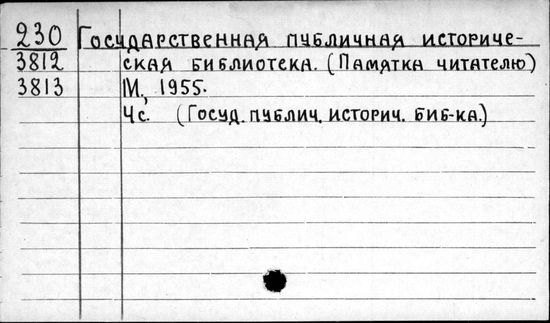 230 Государственная публичная историче-
3812 ская библиотека. (Памятка читателю)
3813 М., 1955.
4с. (Госуд. публич. историч. биб-ка.)